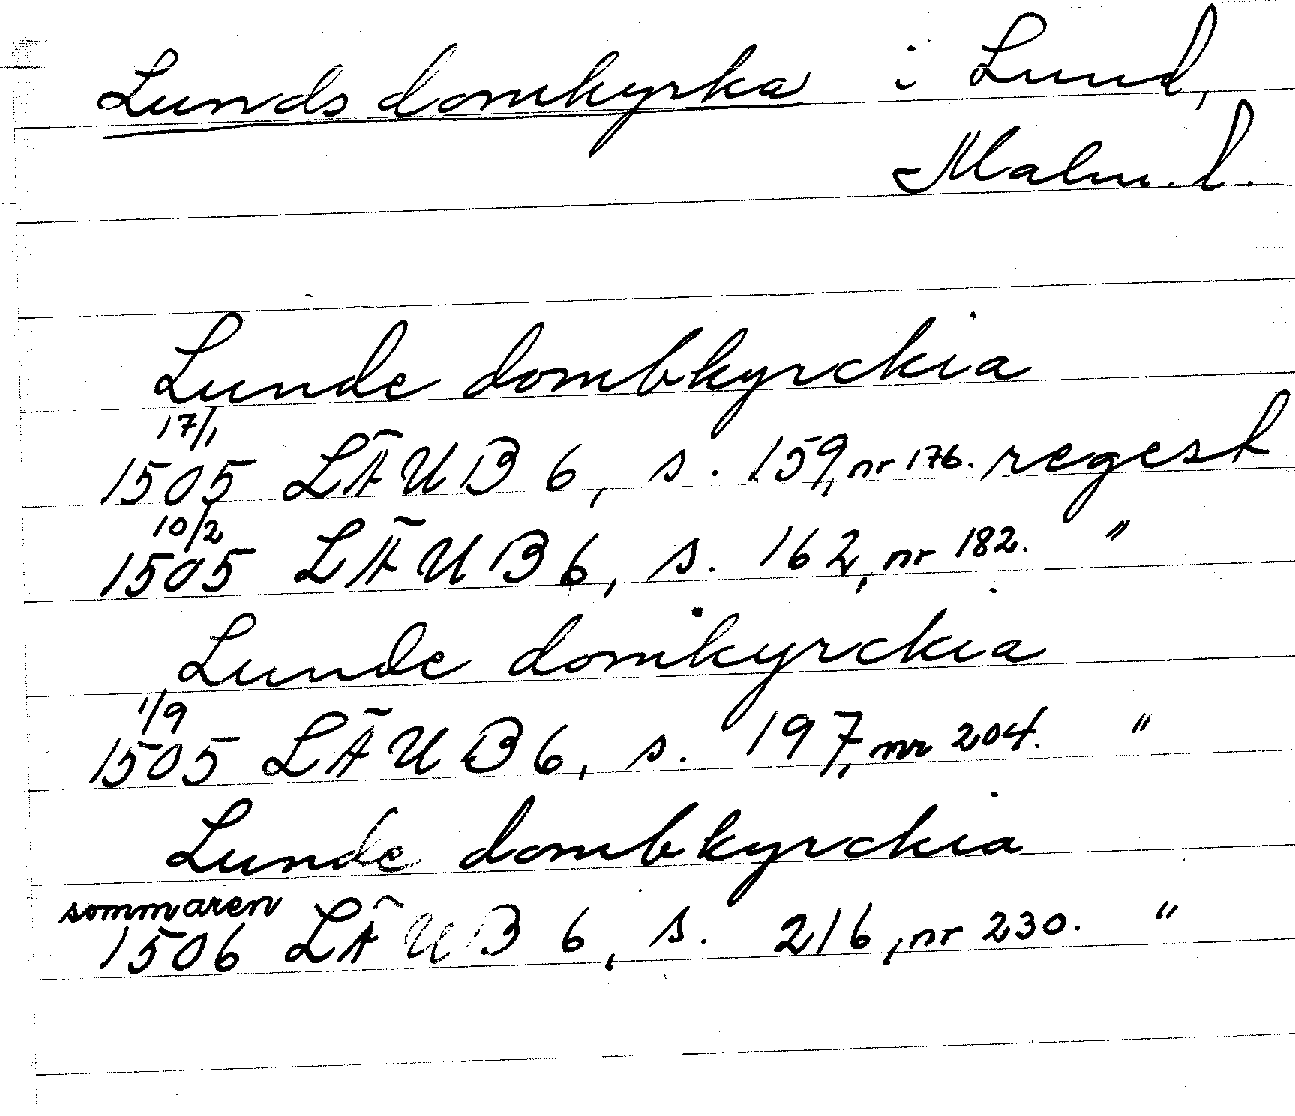 Lunds domkyrka i Lund,
Malm. l.
Lunde dombkyrckia
17/1
1505 LÄUB 6, s. 159, nr 176. regest
10/2
1505 LÄUB 6, s. 162, nr 182. "
Lunde domkyrckia
1/9
1505 LÄUB 6, s. 197, nr 204. "
Lunde dombkyrckia
sommaren
1506 LÄUB 6, s. 216, nr 230. "